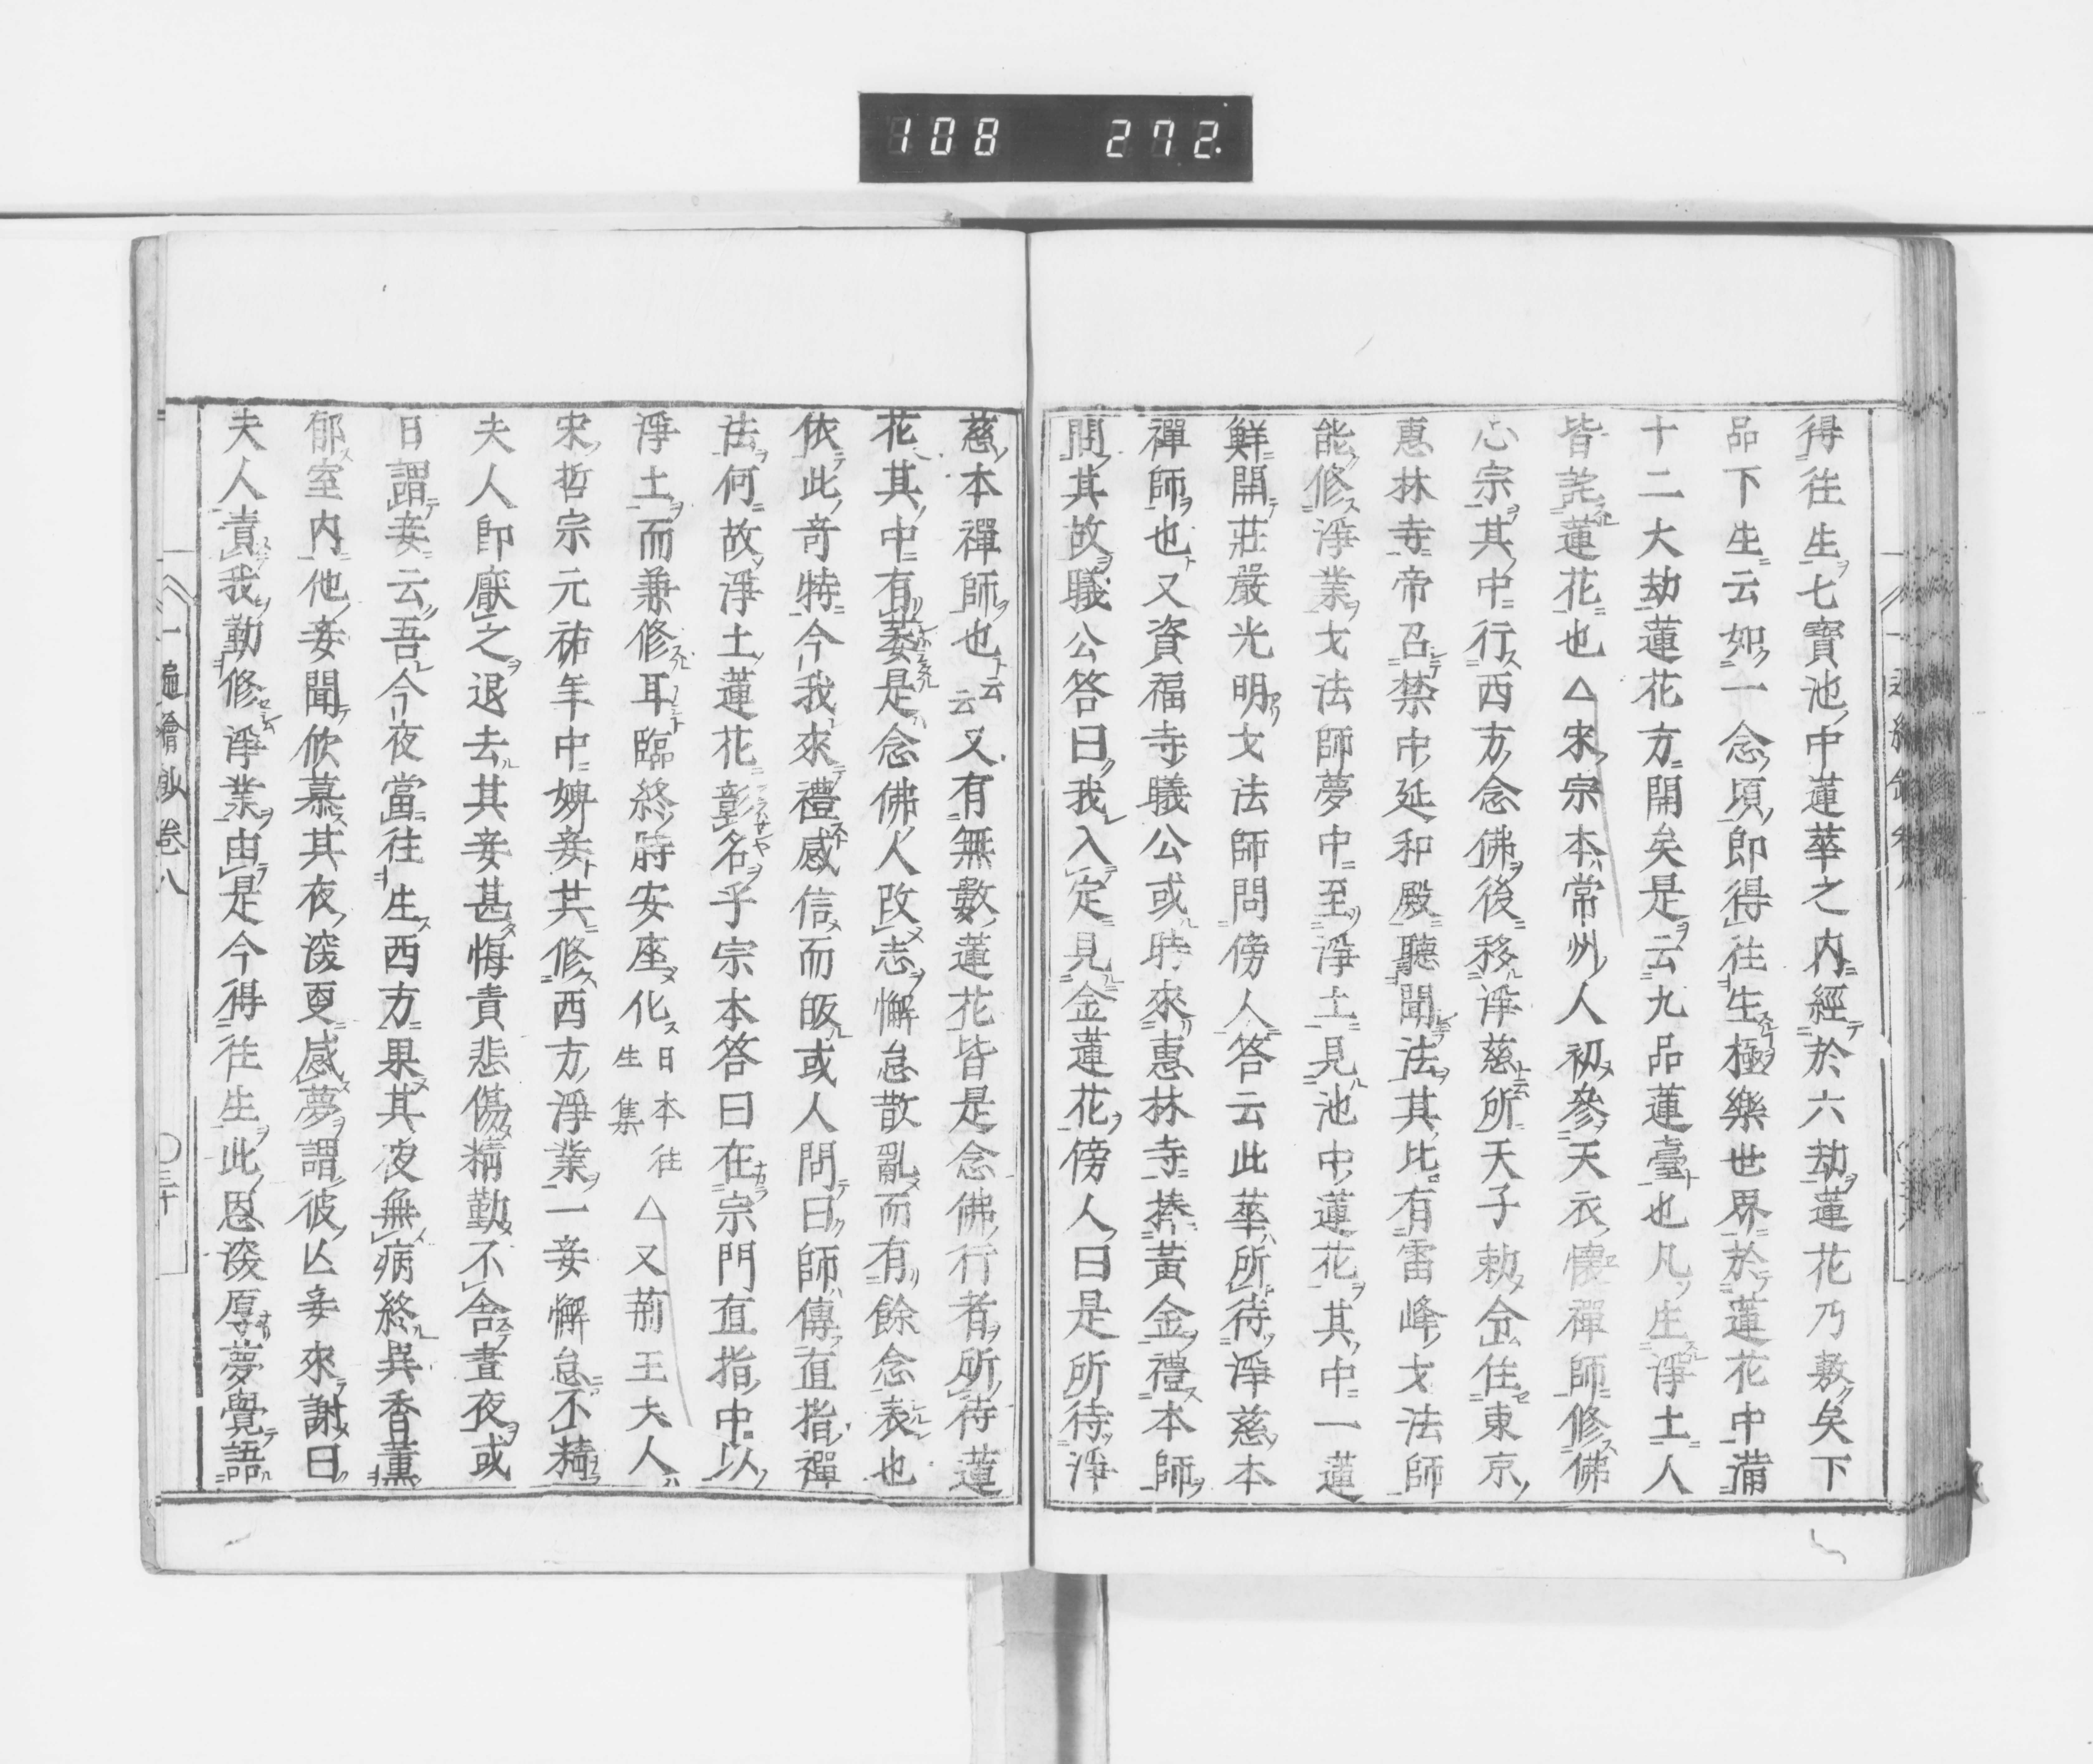 108 272
得往生七寳池中蓮華之内經於六劫蓮花乃敷矣下
品下生云如一念頃即得往生極樂世界於蓮花中滿
十二大劫蓮花方開矣是云九品蓮臺也凡生淨土人
皆託蓮花也△宋宗本常州人初參天衣懷禪師修佛
心宗其中行西方念佛後移淨慈所天子勅令住東京
惠林寺帝召禁中延和殿聽聞法其比有雷峰戈法師
能修淨業戈法師夢中至淨土見池中蓮花其中一蓮
鮮開莊嚴光明戈法師問傍人答云此華所待淨慈本
禪師也又資福寺曦公或時來惠林寺捧黃金禮本師
問其故曦公答曰我入定見金蓮花傍人曰是所待淨
慈本禪師也云又有無數蓮花皆是念佛行者所待蓮
花其中有萎是念佛人改志懈怠散亂而有餘念表也
依此奇特今我來禮感信而皈或人問曰師傳直指禪
法何故淨土蓮花彰名乎宗本答曰在宗門直指中以
淨土而兼修耳臨終時安座化日本往生集△又荊王夫人
宋哲宗元祐年中婢妾其修西方淨業一妾懈怠不精
夫人即厭之退去其妾甚悔責悲傷精勤不舍晝夜或
日謂妾云吾今夜當往生西方果其夜無病終異香薰
郁室内他妾聞欣慕其夜深更感夢謂彼亾妾來謝曰
夫人責我勤修淨業由是今得往生此恩深厚夢覺語
一遍繪鈔卷八
〇三十